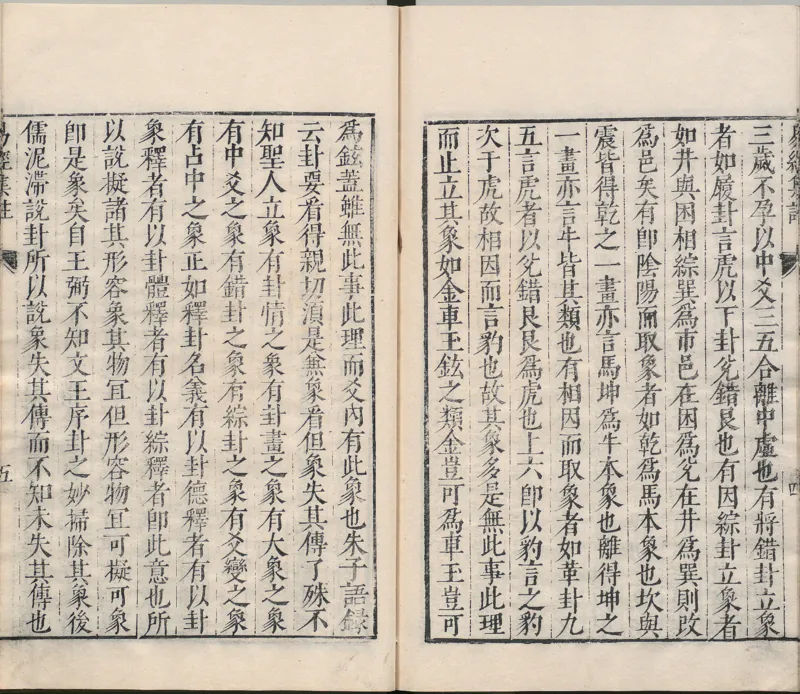 三歲不孕以中爻三五合離中虛也有將錯卦立象
者如履卦言虎以下卦兊錯艮也有因綜卦立象者
如井與困相綜巽為市邑在困為兊在井為巽則改
為邑矣有卽陰陽而取象者如乾為馬本象也坎與
震皆得乾之一畫亦言馬坤為牛本象也離得坤之
一畫亦言牛皆其類也有相因而取象者如革卦九
五言虎者以兊錯艮艮為虎也上六卽以豹言之豹
次于虎故相因而言豹也故其象多是無此事此理
而止立其象如金車玉鉉之類金豈可為車玉豈可
為鉉蓋雖無此事此理而爻內有此象也朱子語錄
云卦要看得親切須是兼象看但象失其傳了殊不
知聖人立象有卦情之象有卦畫之象有大象之象
有中爻之象有錯卦之象有綜卦之象有爻變之象
有占中之象正如釋卦名義有以卦德釋者有以卦
象釋者有以卦體釋者有以卦綜釋者卽此意也所
以說擬諸其形容象其物冝但形容物冝可擬可象
卽是象矣自王弼不知文王序卦之妙掃除其象後
儒泥滯說卦所以說象失其傳而不知未失其傳也
易經集註
五
四